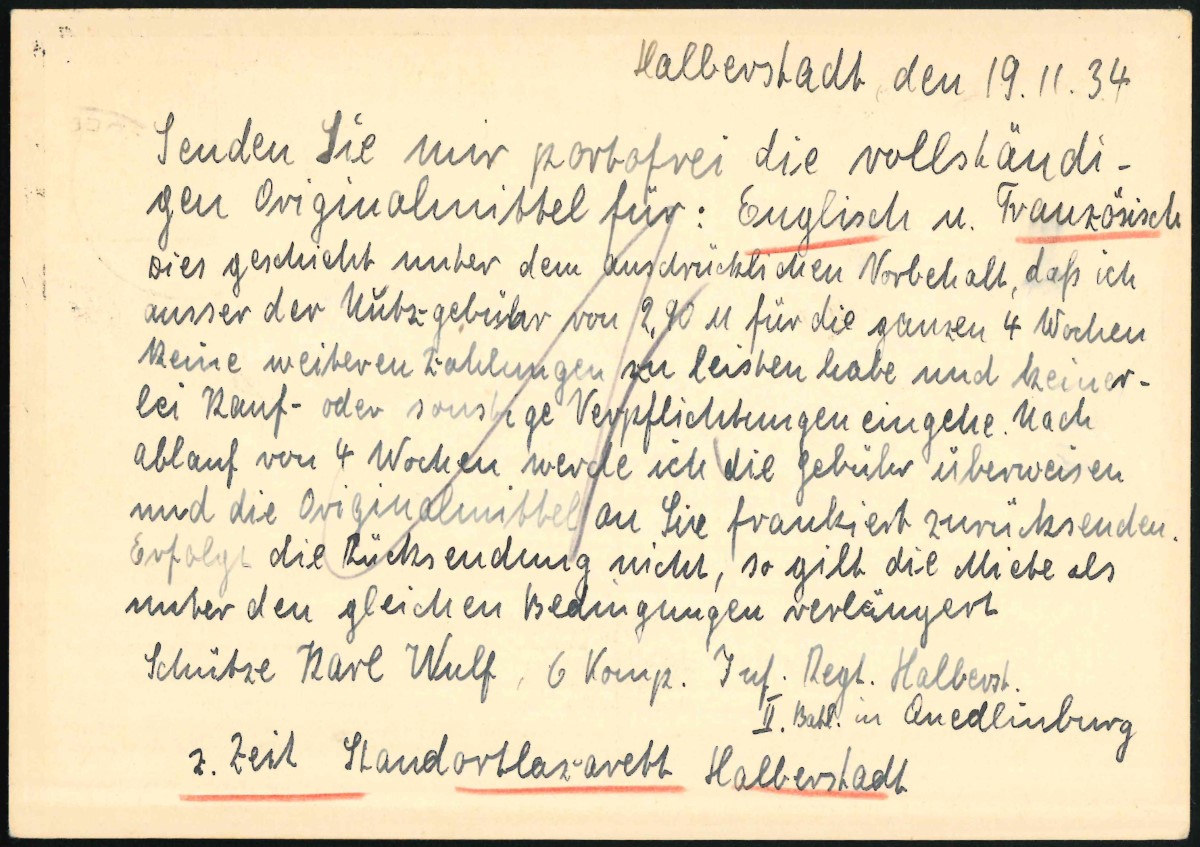 Halberstadt, den 19.11.34
Senden Sie mir portofrei die vollständi-
gen Originalmittel für: Englisch u. Französisch
Dies geschieht unter dem ausdrücklichen Vorbehalt, daß ich
ausser der Nutzgebühr von 2,90 M für die ganzen 4 Wochen
keine weiteren Zahlungen zu leisten habe und keiner-
lei Kauf- oder sonstige Verpflichtungen eingehe. Nach
ablauf von 4 Wochen werde ich die gebühr überweisen
und die Originalmittel an Sie frankiert zurücksenden.
Erfolgt die Rücksendung nicht, so gilt die Miete als
unter den gleichen Bedingungen verlängert
Schütze Karl Wulf, 6 Komp. Inf. Regt. Halberst.
II. Batl. in Quedlinburg
z. Zeit Standortlazarett Halberstadt